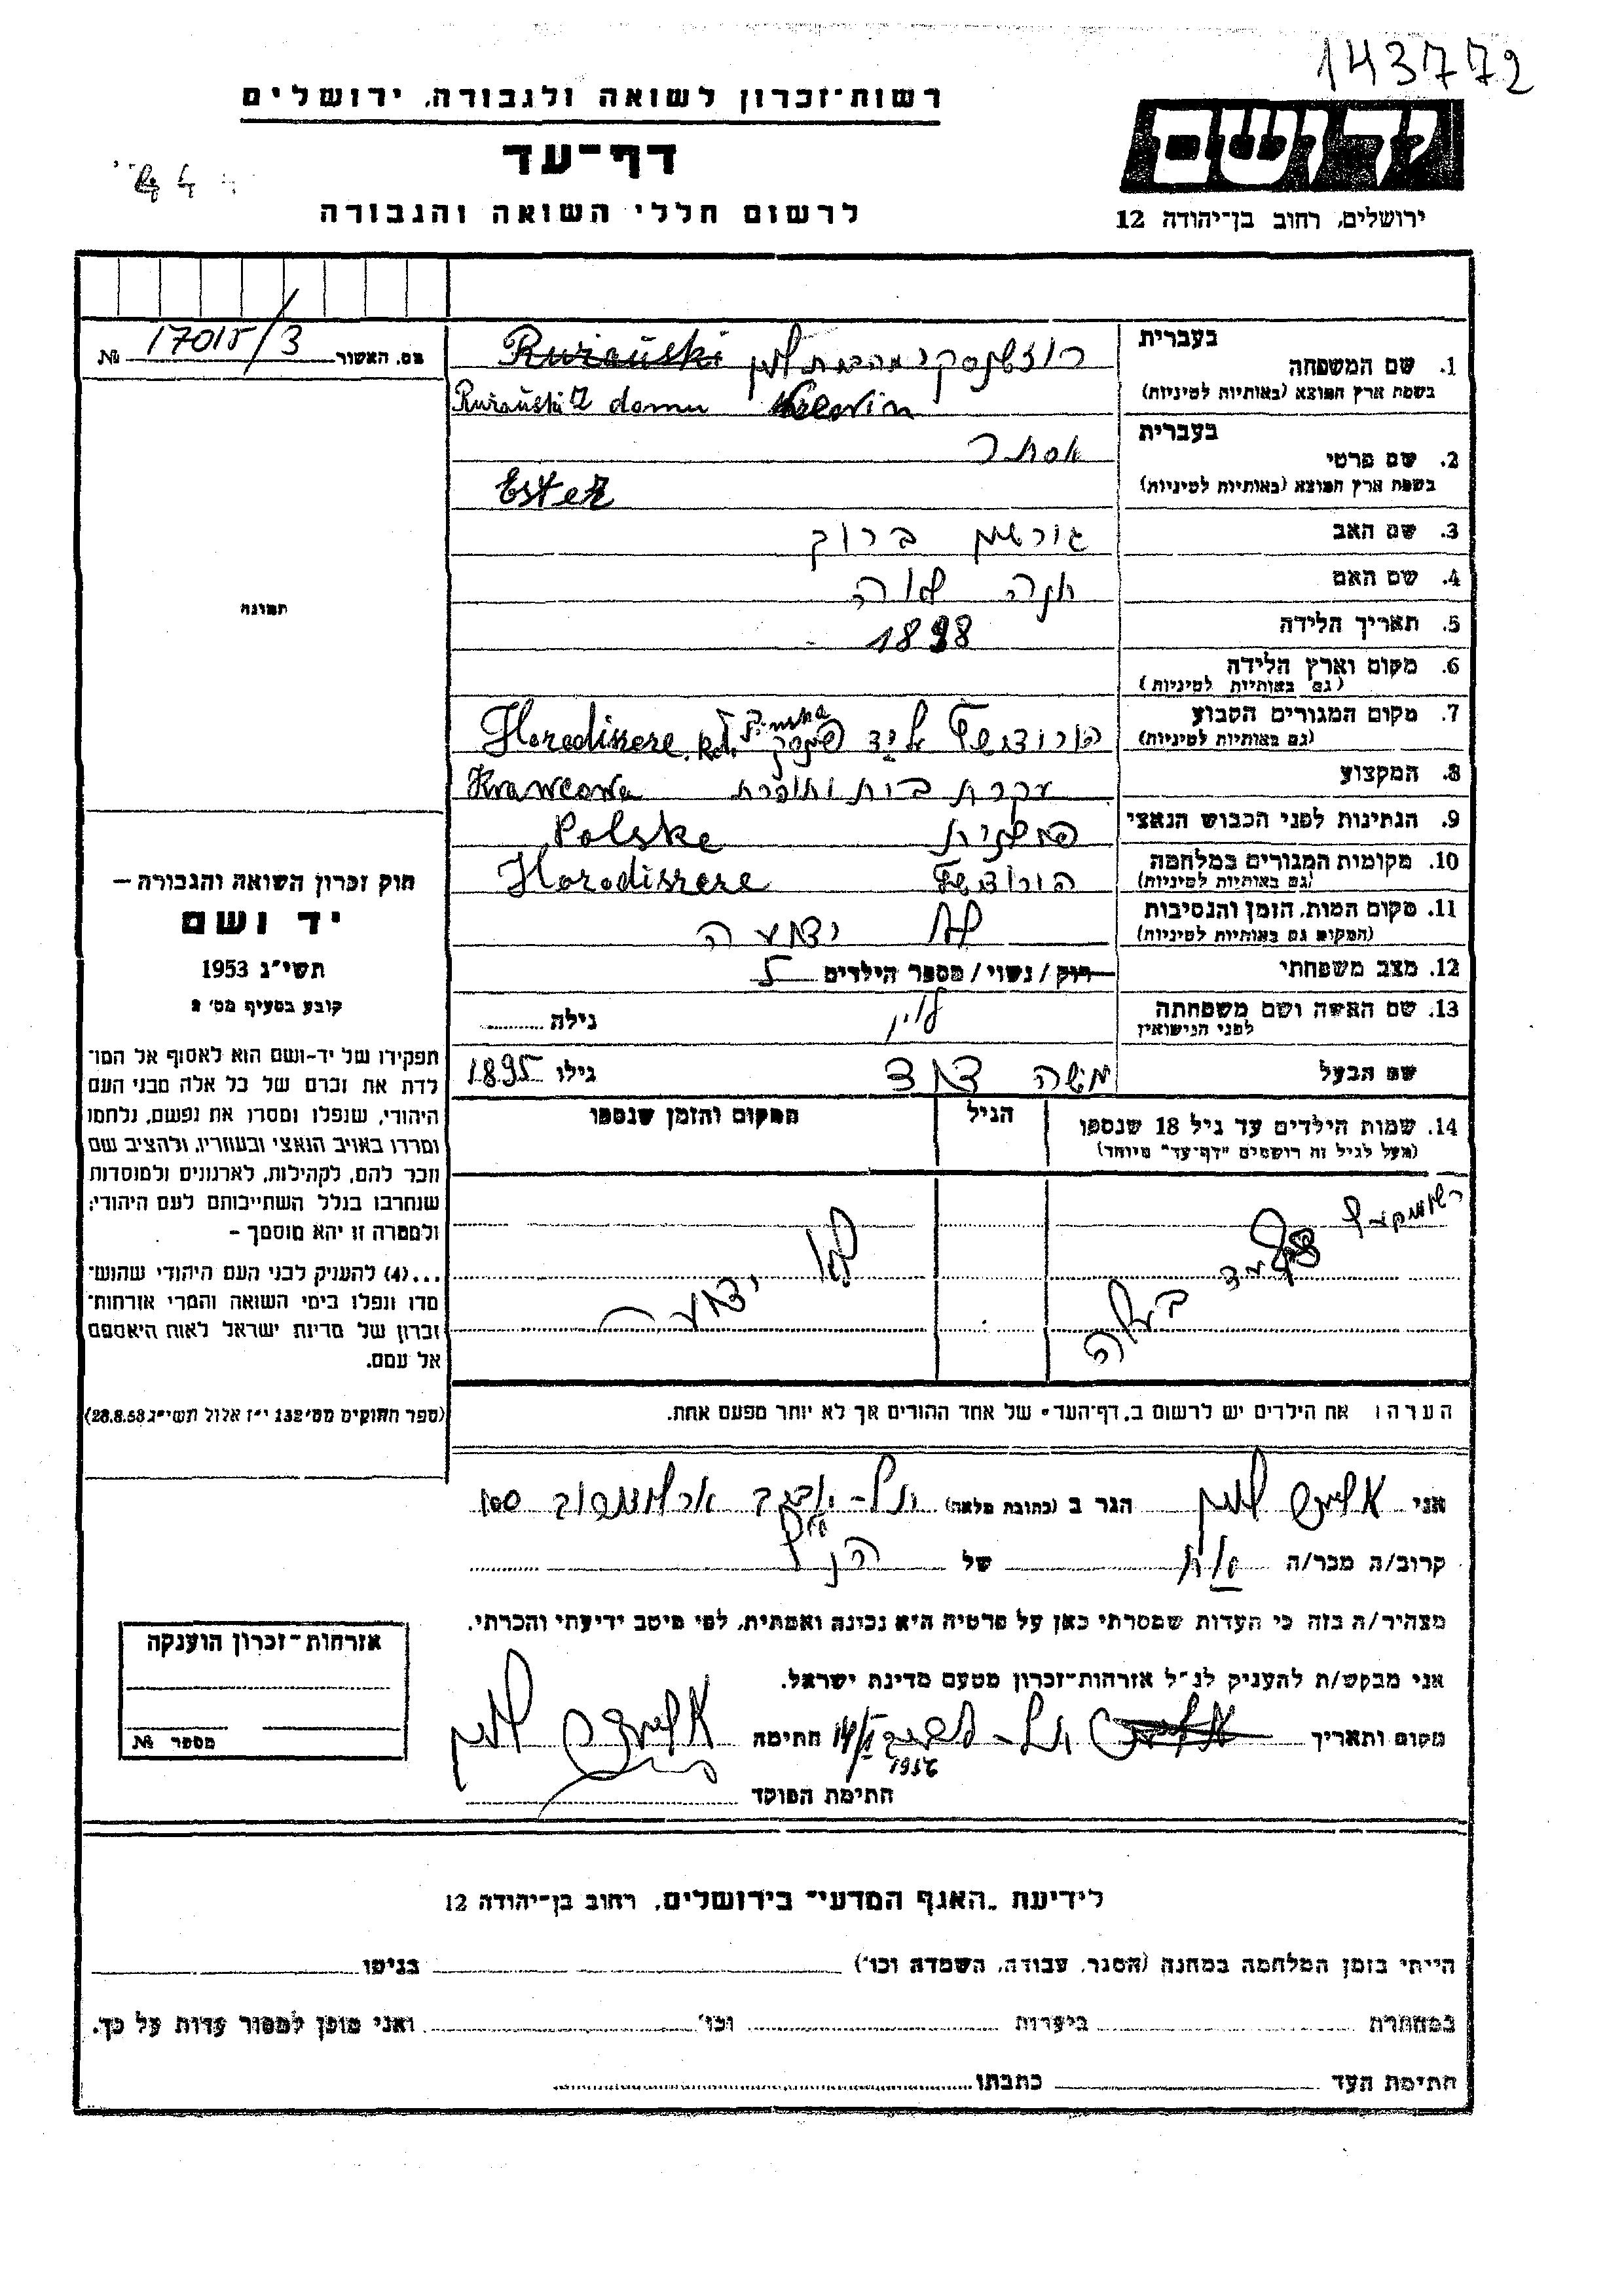 143772
רשות־זכרון לשואה ולגבורה, ירושלים
ידושם
דף־עד
לרשום חללי השואה והגבורה
ירושלים, רחוב בן־יהודה 12
מס. האשור 17015/3 №
בעברית
1. שם המשפחה רוז'נסקי מהבית לוין Rużański
בשפת ארץ המוצא (באותיות לטיניות) Rużański Z domu Lewin
בעברית
2. שם פרטי אסתר
בשפת ארץ המוצא (באותיות לטיניות) Ester
3. שם האב גרשון ברוך
4. שם האם חנה
5. תאריך הלידה 1898
6. מקום וארץ הלידה
(גם באותיות לטיניות)
7. מקום המגורים הקבוע על יד פינסק Horodiszcze k. Pińska
(גם באותיות לטיניות)
8. המקצוע עקרת בית ותופרת Krawcowa
9. הנתינות לפני הכבוש הנאצי פולנית Polske
10. מקומות המגורים במלחמה Horodiszcze
(גם באותיות לטיניות)
11. מקום המות, הזמן והנסיבות לא ידוע
(המקום גם באותיות לטיניות)
12. מצב משפחתי רוק / נשוי / מספר הילדים 5
13. שם האשה ושם משפחתה לוין גילה
לפני הנישואין
שם הבעל משה דוד גילו 1895
14. שמות הילדים עד גיל 18 שנספו
(מעל לגיל זה רושמים "דף־עד" מיוחד)
הגיל
המקום והזמן שנספו
בעלה
לא ידוע
הערה: את הילדים יש לרשום ב"דף־העד" של אחד ההורים אך לא יותר מפעם אחת.
תמונה
חוק זכרון השואה והגבורה —
יד ושם
תשי"ג 1953
קובע בסעיף מס' 2
תפקידו של יד-ושם הוא לאסוף אל המו־
לדת את זכרם של כל אלה מבני העם
היהודי, שנפלו ומסרו את נפשם, נלחמו
ומרדו באויב הנאצי ובעוזריו, ולהציב שם
וזכר להם, לקהילות, לארגונים ולמוסדות
שנחרבו בגלל השתייכותם לעם היהודי;
ולמטרה זו יהא מוסמך –
...(4) להעניק לבני העם היהודי שהוש־
מדו ונפלו בימי השואה והמרי אזרחות־
זכרון של מדינת ישראל לאות היאספם
אל עמם.
(ספר החוקים מס' 132 י"ז אלול תשי"ג 28.8.53)
אני לוין הגר ב (כתובת מלאה) תל-אביב ארלוזורוב 100
קרוב/ה מכר/ה אח של הנ"ל
מצהיר/ה בזה כי העדות שמסרתי כאן על פרטיה היא נכונה ואמתית, לפי מיטב ידיעתי והכרתי.
אני מבקש/ת להעניק לנ"ל אזרחות־זכרון מטעם מדינת ישראל.
מקום ותאריך תל-אביב 1956 חתימה לוין
חתימת הפוקד
אזרחות־זכרון הוענקה
מספר №
לידיעת "האגף המדעי" בירושלים, רחוב בן־יהודה 12
הייתי בזמן המלחמה במחנה (הסגר, עבודה, השמדה וכו') בגיטו
במחתרת ביערות וכו' ואני מוכן למסור עדות על כך.
חתימת העד כתבתו